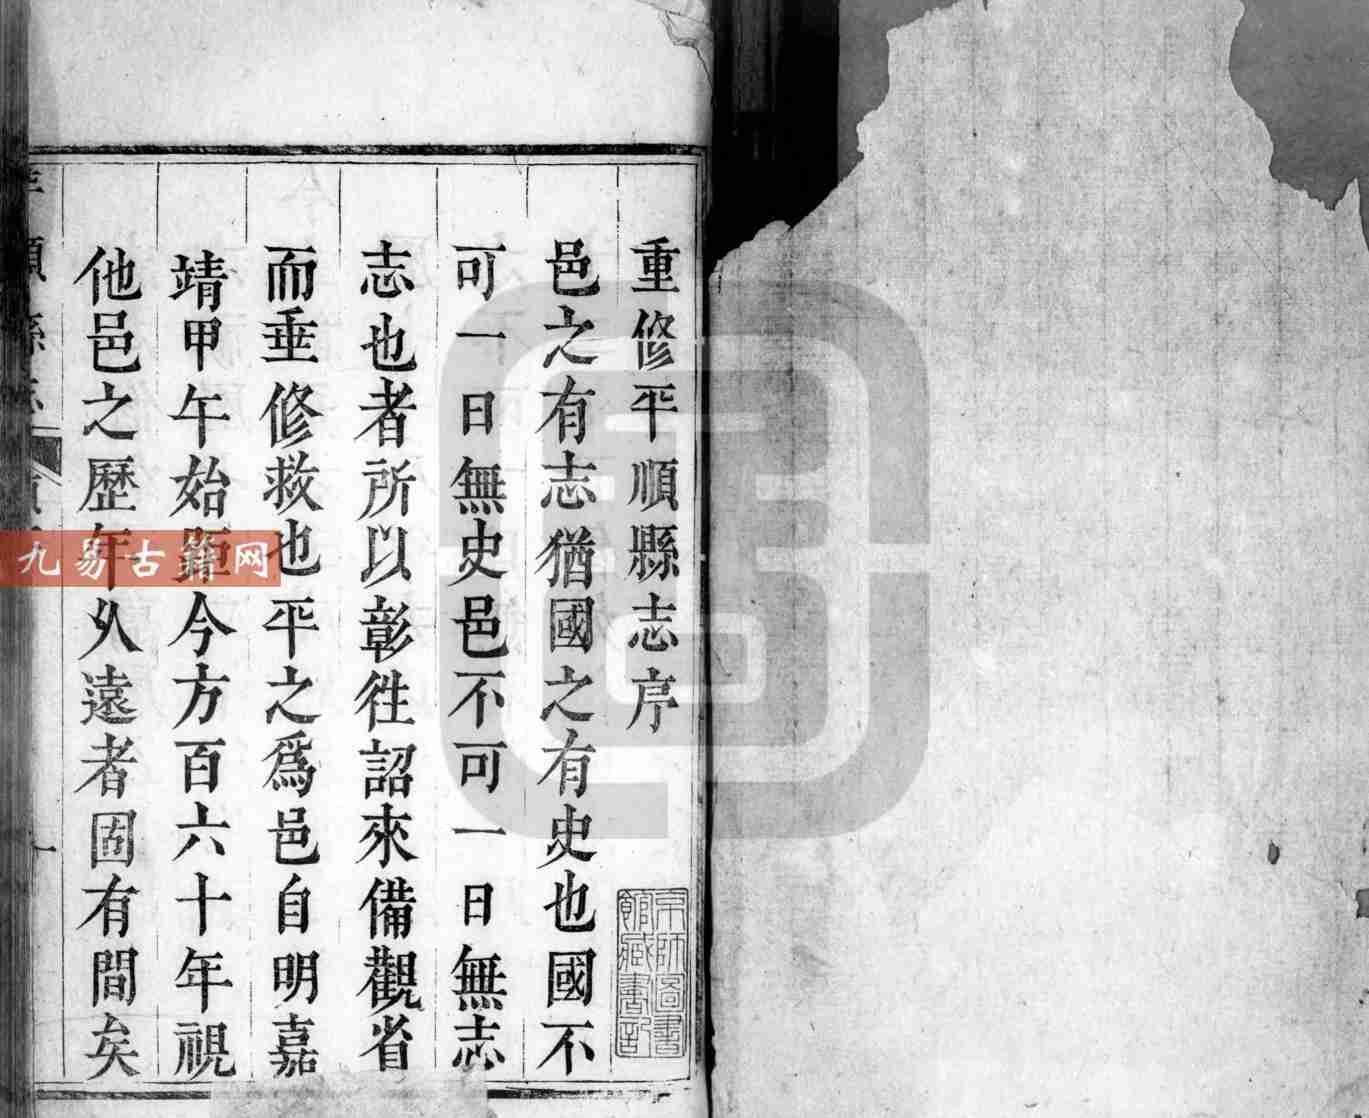 重修平順縣志序
邑之有志猶國之有史也國不
可一日無史邑不可一日無志
志也者所以彰徃詔來備觀省
而垂修救也平之爲邑自明嘉
靖甲午始距今方百六十年視
他邑之歷年乆遠者固有間矣
順縣志
一
京師圖書
館藏書記
九易古籍网